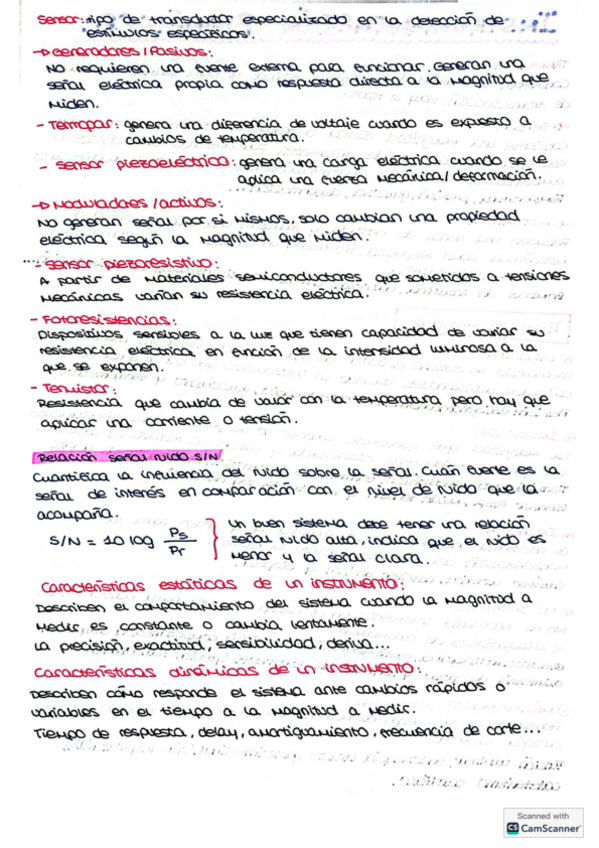 Sensor: tipo de transductor especializado en la detección de
estímulos específicos.
→ Generadores / Pasivos:
No requieren una fuente externa para funcionar. Generan una
señal eléctrica propia como respuesta directa a la magnitud que
miden.
- Termopar: genera una diferencia de voltaje cuando es expuesto a
cambios de temperatura.
- Sensor piezoeléctrico: genera una carga eléctrica cuando se le
aplica una fuerza mecánica / deformación.
→ Moduladores / activos:
No generan señal por si mismos, solo cambian una propiedad
eléctrica según la magnitud que miden.
- Sensor piezoresistivo:
A partir de materiales semiconductores que sometidos a tensiones
mecánicas varían su resistencia eléctrica.
- Fotoresistencias:
Dispositivos, sensibles a la luz que tienen capacidad de variar su
resistencia eléctrica en función de la intensidad luminosa a la
que se exponen.
- Termistor:
Resistencia que cambia de valor con la temperatura pero hay que
aplicar una corriente o tensión.
Relación señal ruido S/N
Cuantifica la influencia del ruido sobre la señal. Cuán fuerte es la
señal de interés en comparación con el nivel de ruido que la
acompaña.
S/N = 10 log Ps/Pr } Un buen sistema debe tener una relación
señal ruido alta, indica que el ruido es
menor y la señal clara.
Características estáticas de un instrumento:
Describen el comportamiento del sistema cuando la magnitud a
medir es constante o cambia lentamente.
La precisión, exactitud, sensibilidad, deriva...
Características dinámicas de un instrumento:
Describen cómo responde el sistema ante cambios rápidos o
variables en el tiempo a la magnitud a medir.
Tiempo de respuesta, delay, amortiguamiento, frecuencia de corte...
Scanned with
CS CamScanner